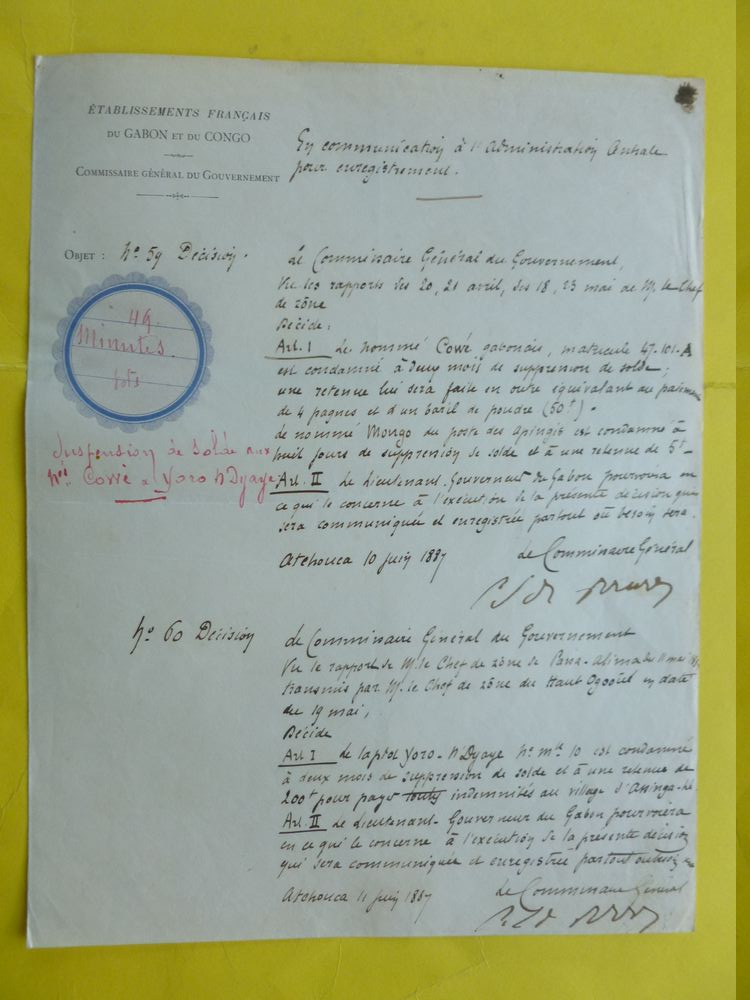 ÉTABLISSEMENTS FRANÇAIS
DU GABON ET DU CONGO
COMMISSAIRE GÉNÉRAL DU GOUVERNEMENT
En communication à l'Administration Centrale
pour enregistrement.
OBJET : No 59 Décision.
49
Minutes
Suspension de Solde aux
Nés Cowé & Yoro N'Dyaye
Le Commissaire Général du Gouvernement,
Vu les rapports des 20, 21 avril, des 18, 23 mai de M. le Chef
de zône
Décide :
Art. I Le nommé Cowé gabonais, matricule 47.101.A
est condamné à deux mois de suppression de solde ;
une retenue lui sera faite en outre équivalant au paiement
de 4 pagnes et d'un baril de poudre (50f).
Le nommé Mongo du poste des Apingis est condamné à
huit jours de suppression de solde et à une retenue de 5f.
Art. II Le Lieutenant-Gouverneur du Gabon pourvoira en
ce qui le concerne à l'exécution de la présente décision qui
sera communiquée et enregistrée partout où besoin sera.
Atchouca 10 juin 1887 Le Commissaire Général
No 60 Décision
Le Commissaire Général du Gouvernement
Vu le rapport de M. le Chef de zône de Pana-Alima du 11 mai
transmis par M. le Chef de zône du Haut Ogooué en date
du 19 mai,
Décide
Art I Le laptot Yoro-N'Dyaye No mle 10 est condamné
à deux mois de suppression de solde et à une retenue de
200f pour payer indemnités au village d'
Art. II Le Lieutenant-Gouverneur du Gabon pourvoiera
en ce qui le concerne à l'exécution de la présente décision
qui sera communiquée et enregistrée partout où besoin
Atchouca 11 juin 1887 Le Commissaire Général